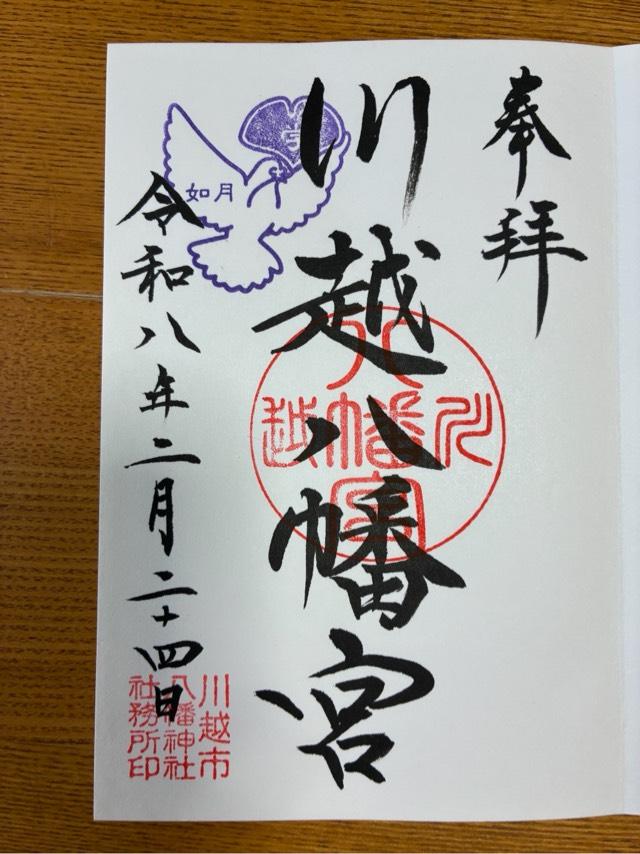 奉拝
川越八幡宮
如月
令和八年二月二十四日
川越八幡宮
川越市
八幡神社
社務所印